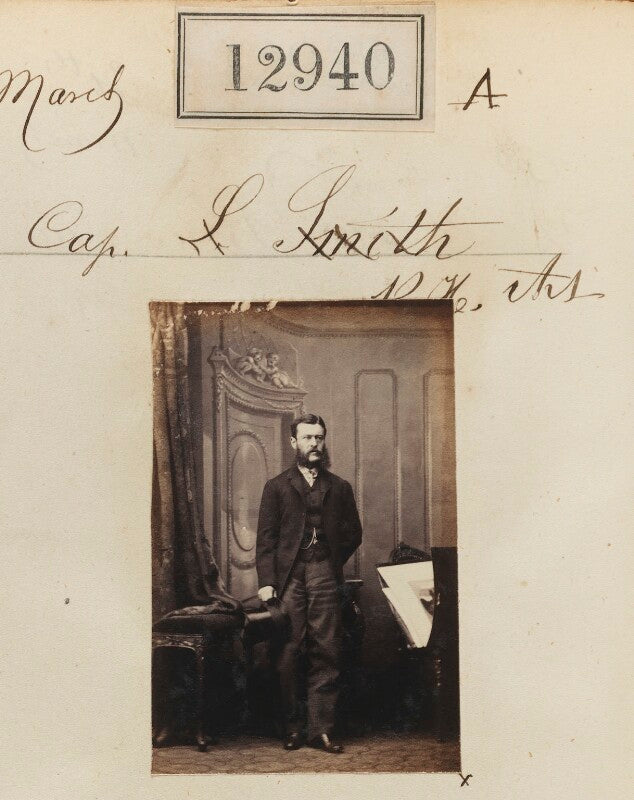 12940
March A
Cap. L Smith
R. H. Art
x